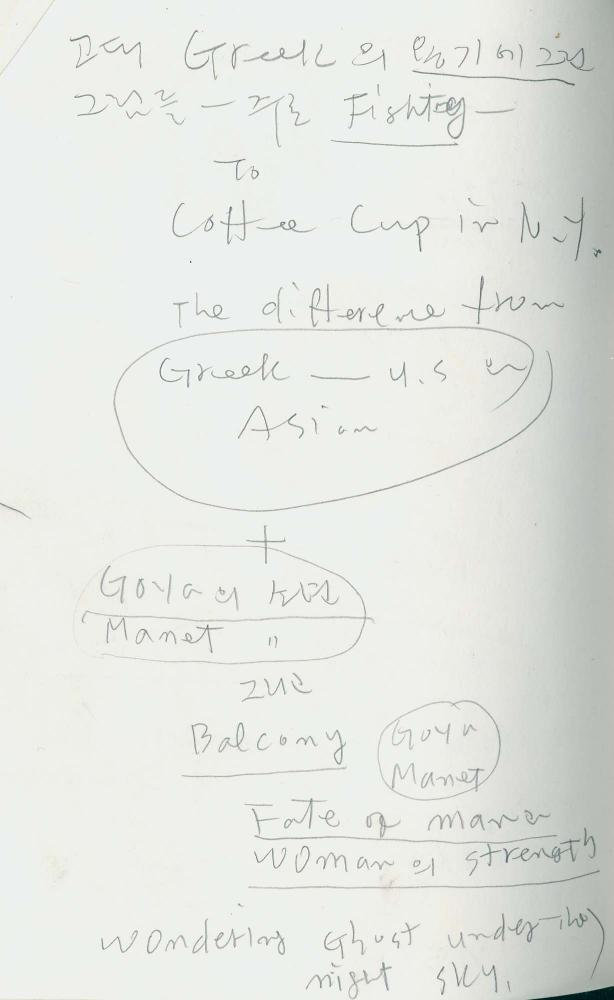 고대 Greek 의 용기에 그린
그림들 — 주로 Fishting —
To
Coffee Cup in N.Y.
The difference from
Greek — U.S
Asian
+
Goya의
Manet "
그리고
Balcony Goya
Manet
Fate of
woman의 strength
wondering Ghost under the
night sky.